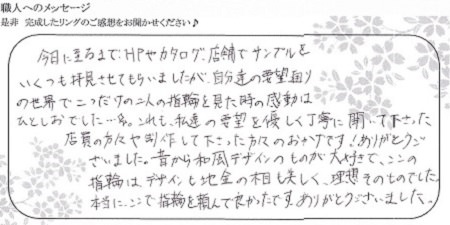 職人へのメッセージ
是非 完成したリングのご感想をお聞かせください♪
今日に至るまで、HPやカタログ、店舗でサンプルを
いくつも拝見させてもらいましたが、自分達の要望通り
の世界で二つだけの二人の指輪を見た時の感動は
ひとしおでした…。これも、私達の要望を優しく丁寧に聞いて下さった
店員の方々や制作して下さった方々のおかげです!ありがとうご
ざいました。昔から和風デザインのものが大好きで、ここの
指輪はデザインも地金の木目も美しく、理想そのものでした。
本当にここで指輪を頼んで良かったです。ありがとうございました。